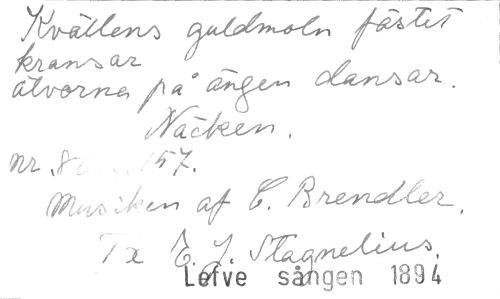 Kvällens guldmoln fästet
kransar
älvorna på ängen dansar.
Näcken.
nr. 157.
Musiken af C. Brendler.
Tx E. J. Stagnelius.
Lefve sången 1894